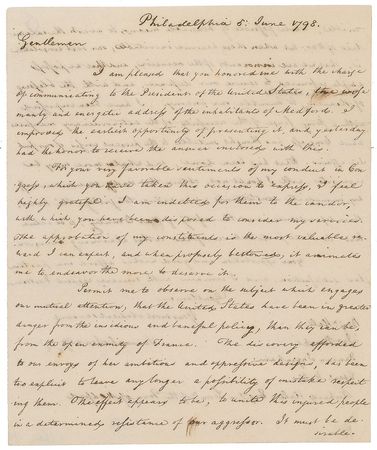 Philadelphia 5: June 1798.
Gentlemen
I am pleased that you honored me with the charge
of communicating to the President of the United States, the
manly and energetic address of the inhabitants of Medford. I
improved the earliest opportunity of presenting it, and yesterday
had the honor to receive the answer inclosed with this.
For your very favorable sentiments of my conduct in Con-
gress, which you have taken this occasion to express, I feel
highly grateful. I am indebted for them to the candor,
with which you have been disposed to consider my services.
The approbation of my constituents is the most valuable re-
ward I can expect, and when properly bestowed, it animates
me to endeavor the more to deserve it.
Permit me to observe on the subject which engages
our mutual attention, that the United States have been in greater
danger from the insidious and baneful policy, than they can be,
from the open enmity of France. The discovery afforded
to our envoys of her ambition and oppressive designs, has been
too explicit to leave any longer a possibility of mistake respect-
ing them. The effect appears to be, to unite this injured people
in a determined resistance of our aggressor. It must be de-
sirable